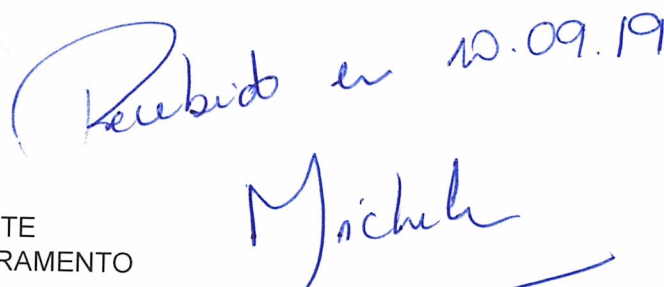 Recebido em 10.09.19
Michele
TE
RAMENTO